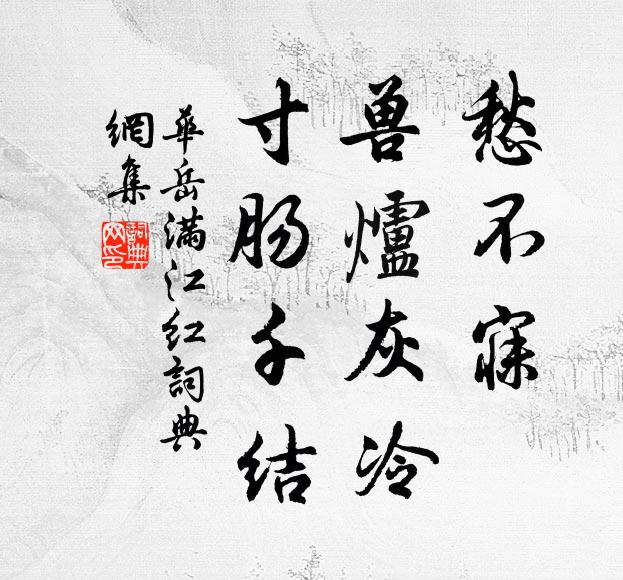 愁不寐
兽爐灰冷
寸肠千结
華岳满江红詞典
網集
詞典
网印